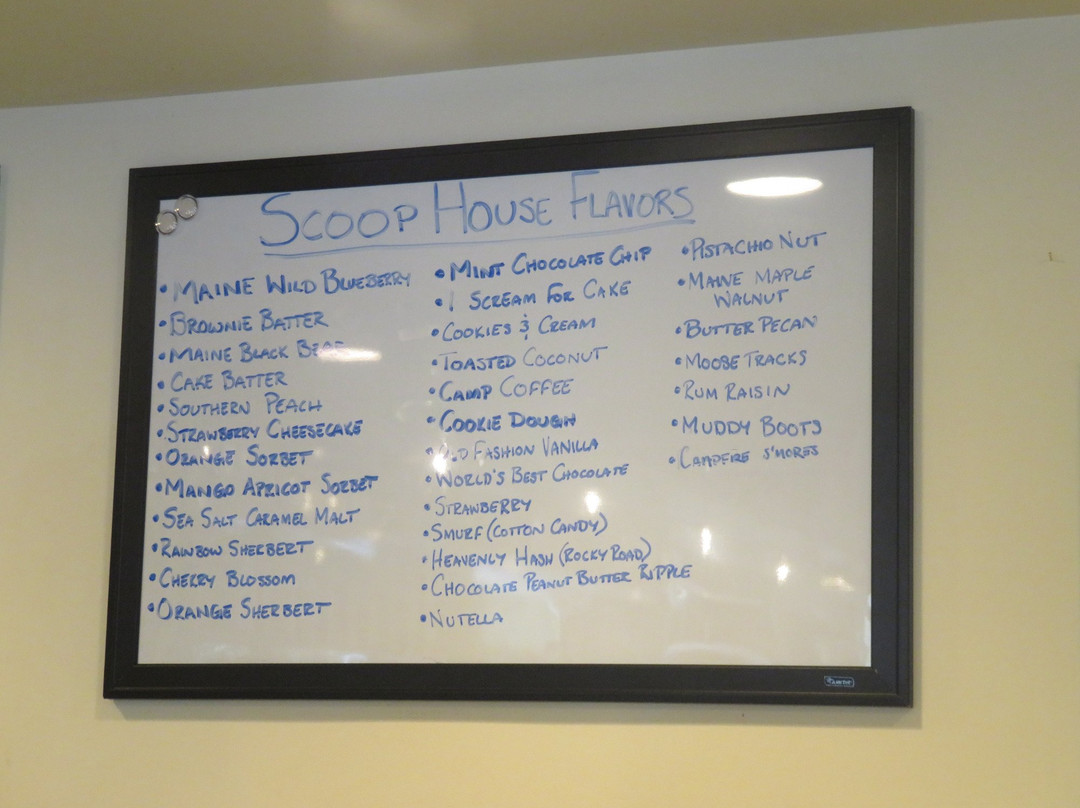 SCOOP HOUSE FLAVORS
• MAINE WILD BLUEBERRY
• BROWNIE BATTER
• MAINE BLACK BEAR
• CAKE BATTER
• SOUTHERN PEACH
• STRAWBERRY CHEESECAKE
• ORANGE SORBET
• MANGO APRICOT SORBET
• SEA SALT CARAMEL MALT
• RAINBOW SHERBERT
• CHERRY BLOSSOM
• ORANGE SHERBERT
• MINT CHOCOLATE CHIP
• I SCREAM FOR CAKE
• COOKIES & CREAM
• TOASTED COCONUT
• CAMP COFFEE
• COOKIE DOUGH
• OLD FASHION VANILLA
• WORLD'S BEST CHOCOLATE
• STRAWBERRY
• SMURF (COTTON CANDY)
• HEAVENLY HASH (ROCKY ROAD)
• CHOCOLATE PEANUT BUTTER RIPPLE
• NUTELLA
• PISTACHIO NUT
• MAINE MAPLE
WALNUT
• BUTTER PECAN
• MOOSE TRACKS
• RUM RAISIN
• MUDDY BOOTS
• CAMPFIRE S'MORES